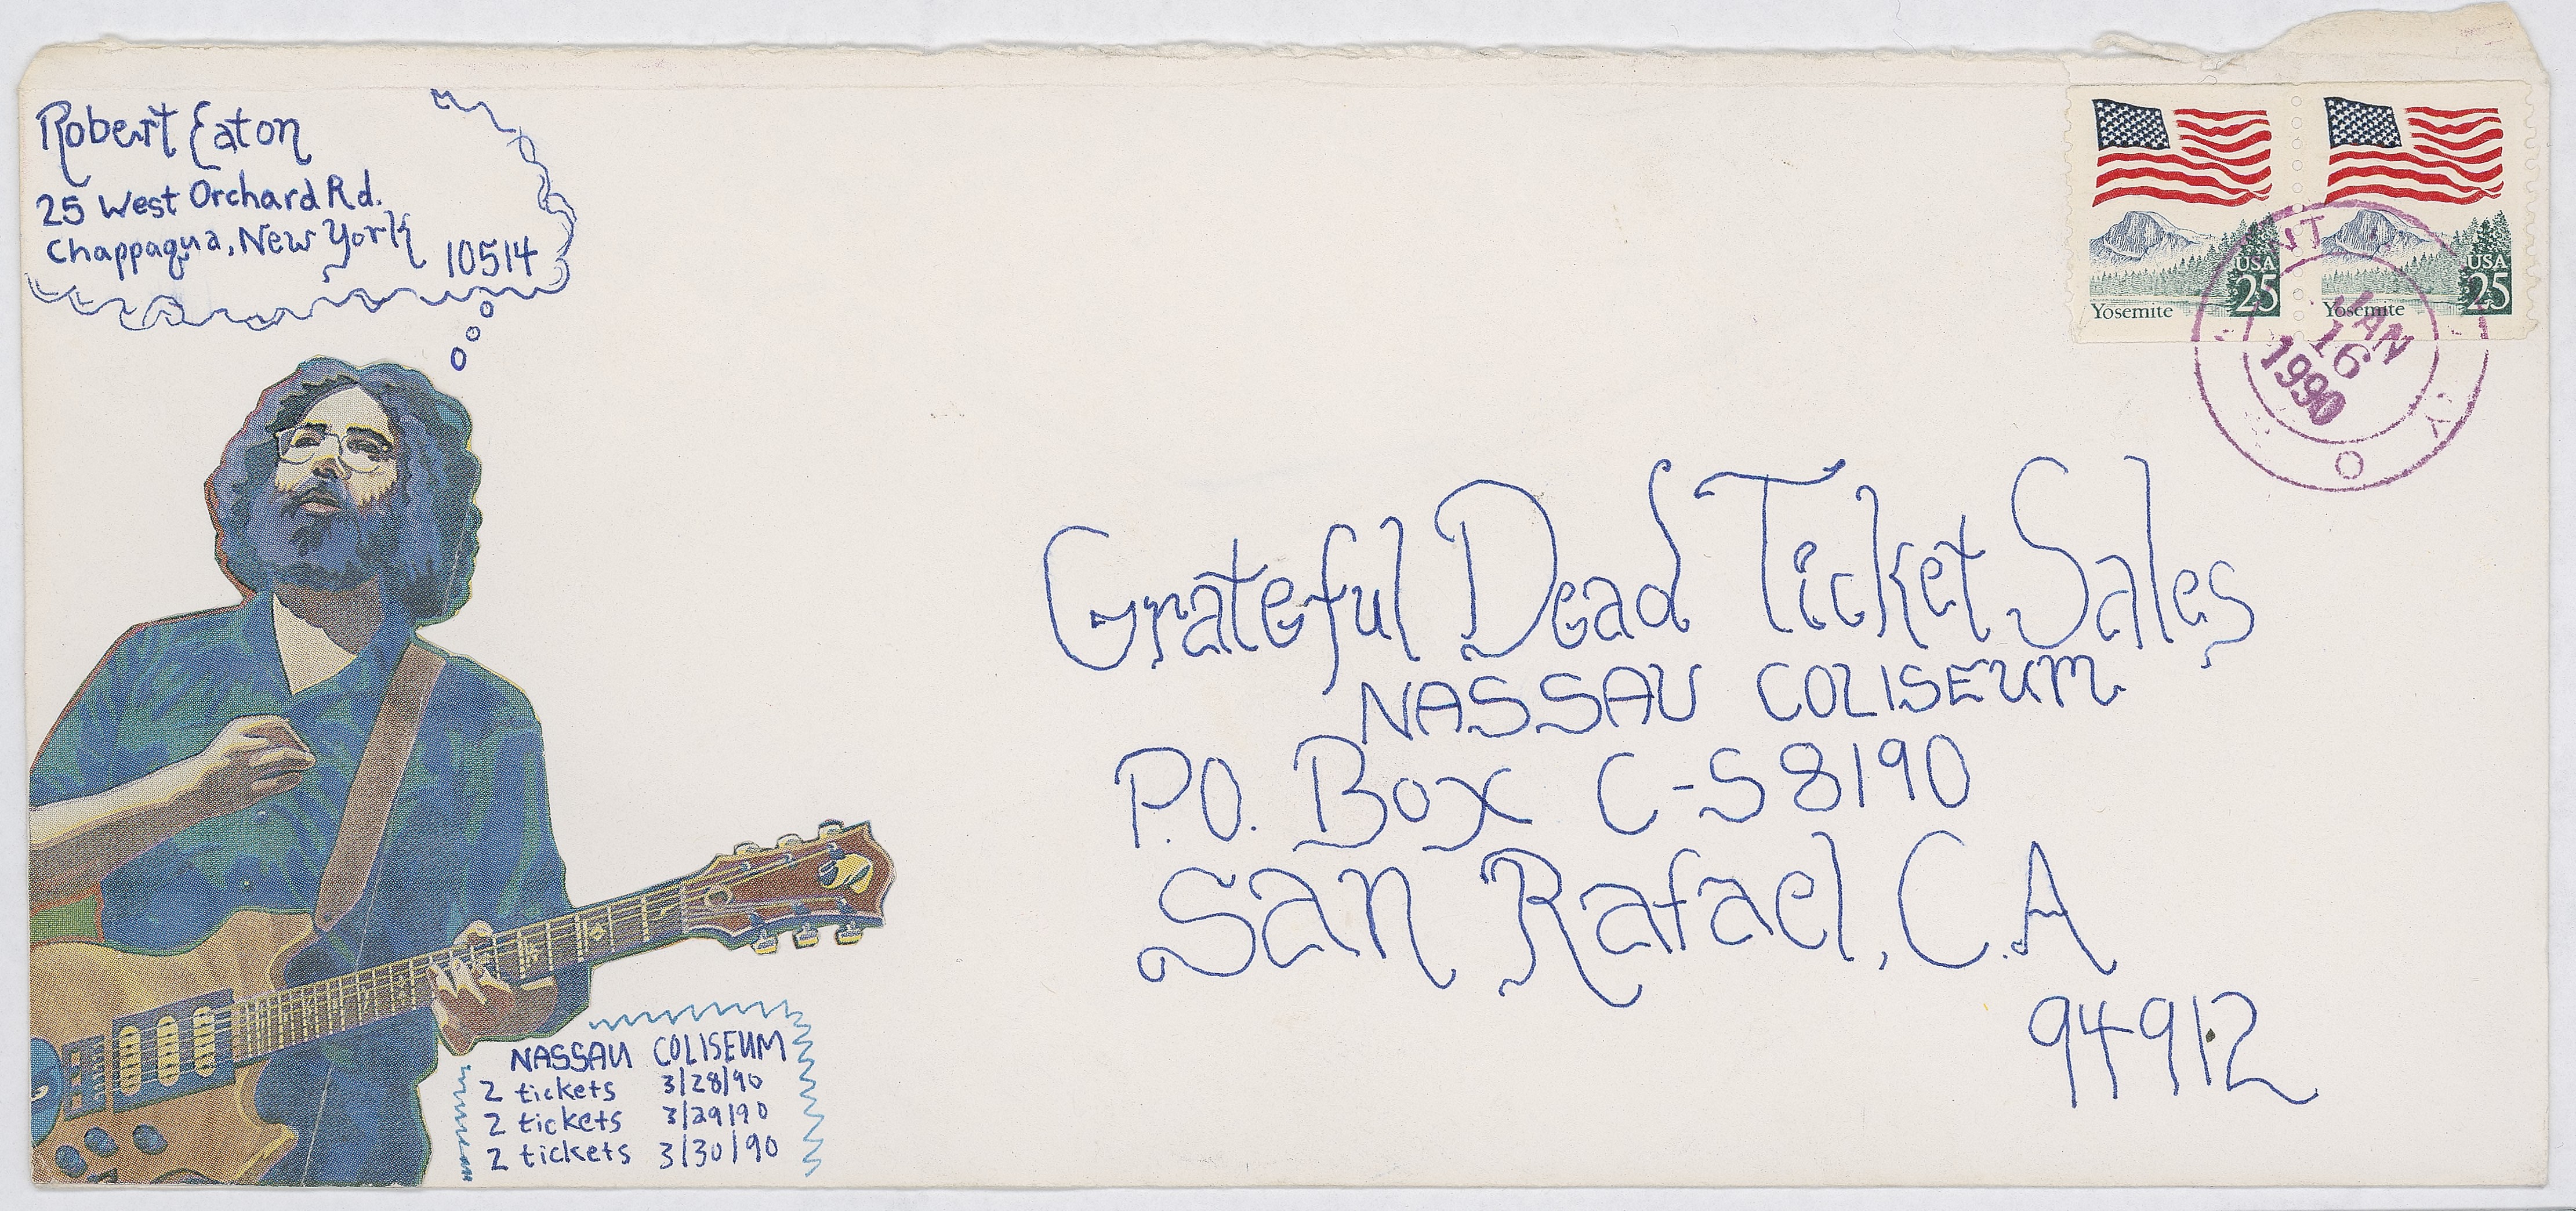 Robert Eaton
25 West Orchard Rd.
Chappaqua, New York 10514
USA
25
Yosemite
USA
25
Yosemite
JAN
16
1990
Grateful Dead Ticket Sales
NASSAU COLISEUM
P.O. Box C-S8190
San Rafael, C.A
94912
NASSAU COLISEUM
2 tickets 3/28/90
2 tickets 3/29/90
2 tickets 3/30/90